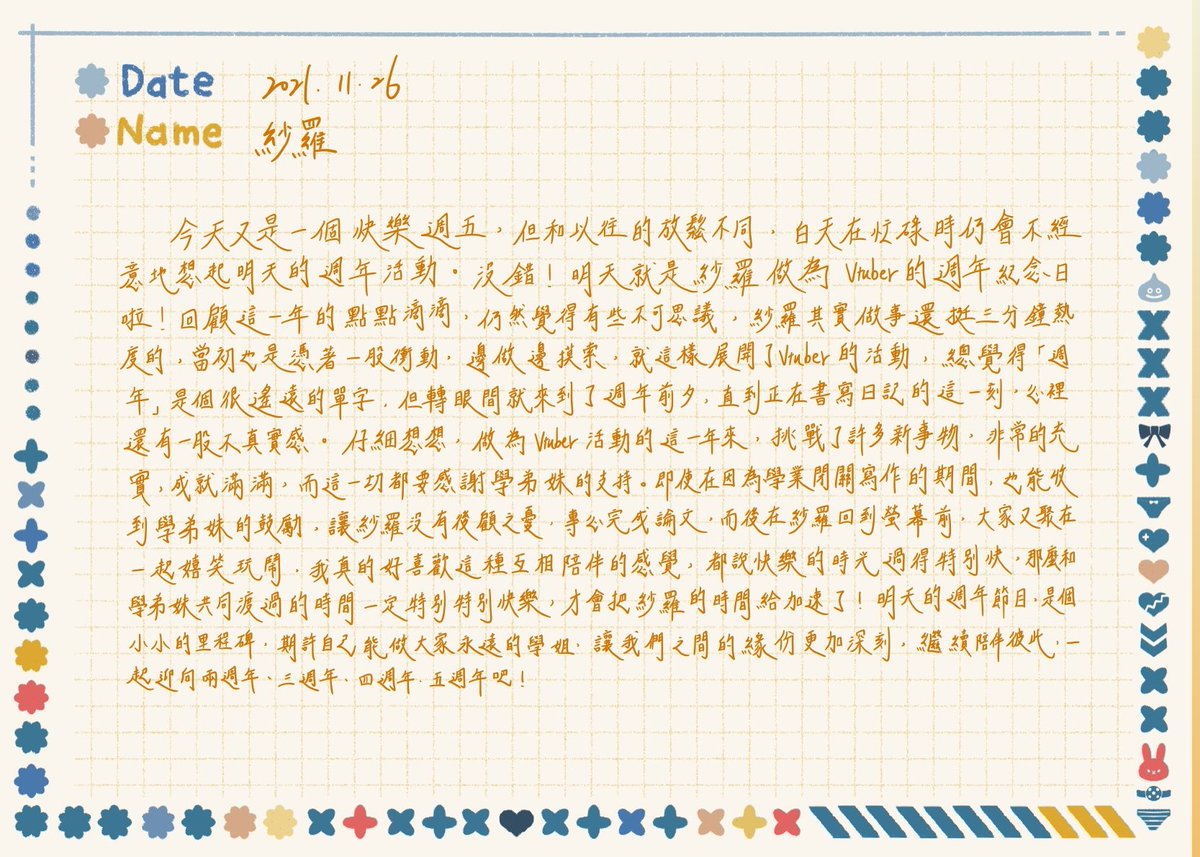 Date 2021.11.26
Name 紗羅
今天又是一個快樂週五，但和以往的放鬆不同，白天在忙碌時仍會不經
意地想起明天的週年活動。沒錯！明天就是紗羅做為Vtuber的週年紀念日
啦！回顧這一年的點點滴滴，仍然覺得有些不可思議，紗羅其實做事還挺三分鐘熱
度的，當初也是憑著一股衝動，邊做邊摸索，就這樣展開了Vtuber的活動，總覺得「週
年」是個很遙遠的單字，但轉眼間就來到了週年前夕，直到正在書寫日記的這一刻，心裡
還有一股不真實感。仔細想想，做為Vtuber活動的這一年來，挑戰了許多新事物，非常的充
實，成就滿滿，而這一切都要感謝學弟妹的支持。即使在因為學業閉關寫作的期間，也能收
到學弟妹的鼓勵，讓紗羅沒有後顧之憂，專心完成論文，而後在紗羅回到螢幕前，大家又聚在
一起嬉笑玩鬧，我真的好喜歡這種互相陪伴的感覺，都說快樂的時光過得特別快，那麼和
學弟妹共同渡過的時間一定特別特別快樂，才會把紗羅的時間給加速了！明天的週年節目，是個
小小的里程碑，期許自己能做大家永遠的學姐，讓我們之間的緣份更加深刻，繼續陪伴彼此，一
起迎向兩週年、三週年、四週年、五週年吧！